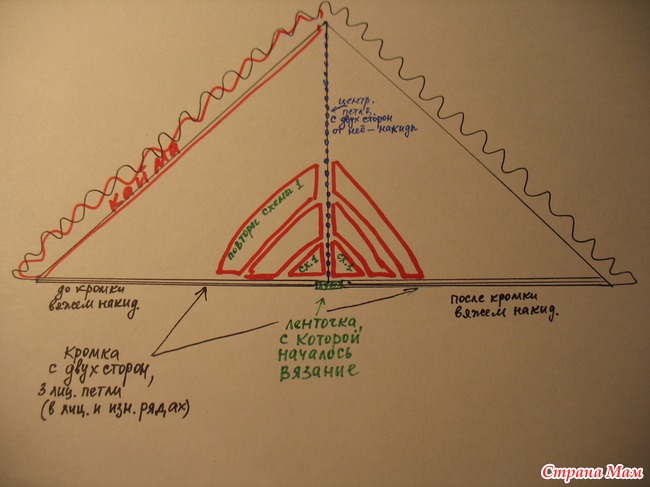 центр.
петля.
с двух сторон
от неё - накиды
кайма
повторы схемы 1
сх.1
сх.1
до кромки
вяжем накид.
после кромки
вяжем накид.
ленточка,
с которой
началось
вязание
кромка
с двух сторон,
3 лиц. петли
(в лиц. и изн. рядах)
Страна Мам